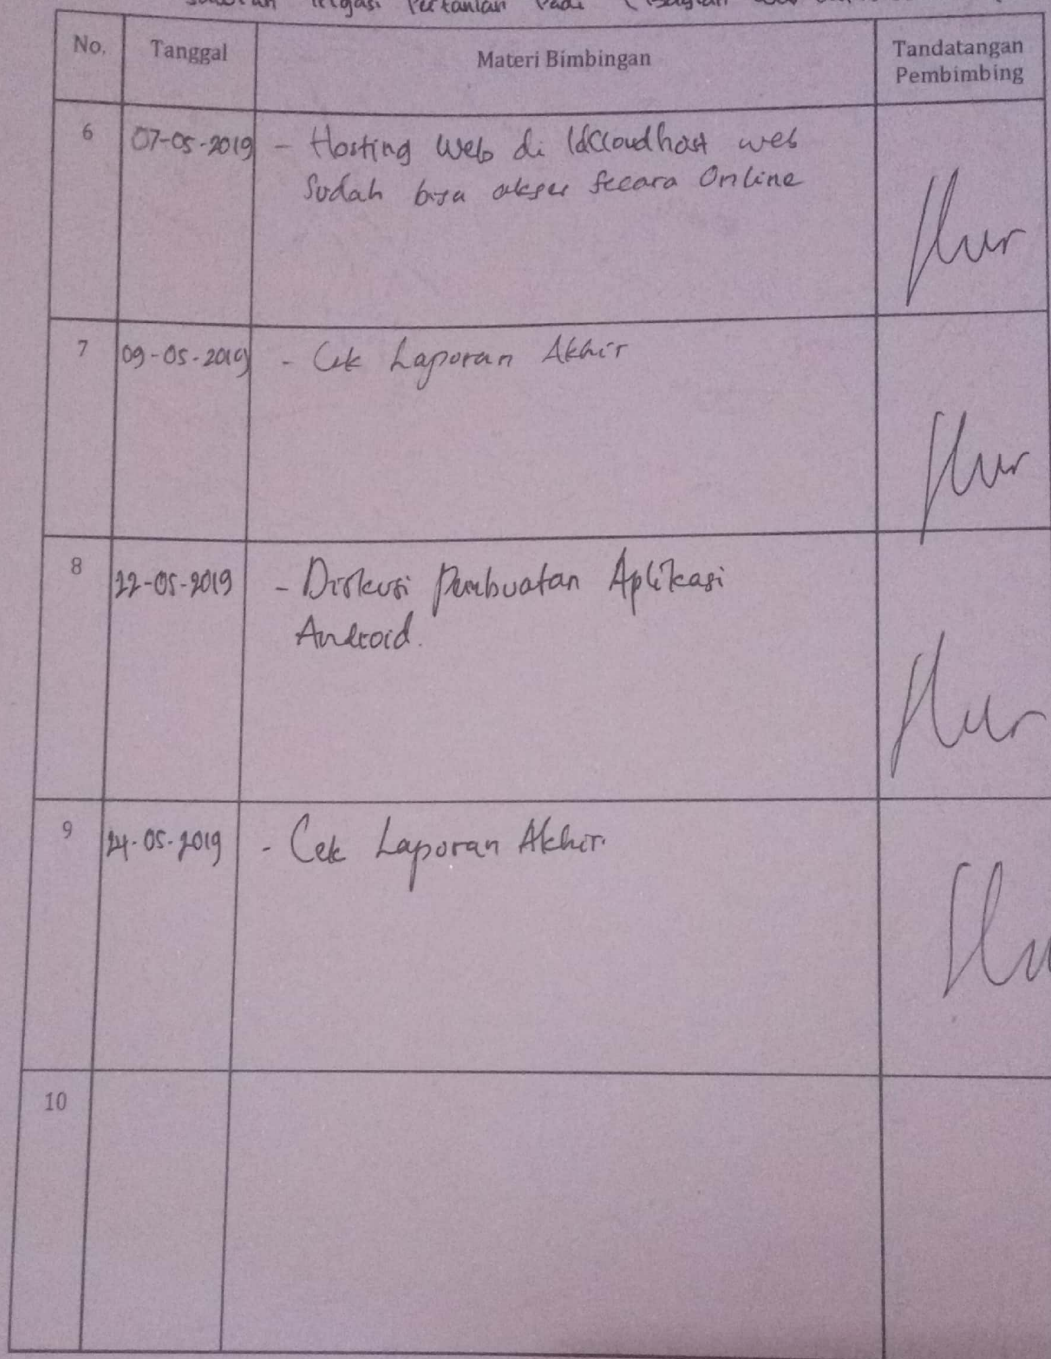 Saluran Irigasi Pertanian Padi (Bagian Web
No.
Tanggal
Materi Bimbingan
Tandatangan
Pembimbing
6
07-05-2019
- Hosting Web di IdCloudhost web
Sudah bisa akses secara Online
7
09-05-2019
- Cek Laporan Akhir
8
22-05-2019
- Diskusi Pembuatan Aplikasi
Android.
9
24-05-2019
- Cek Laporan Akhir.
10